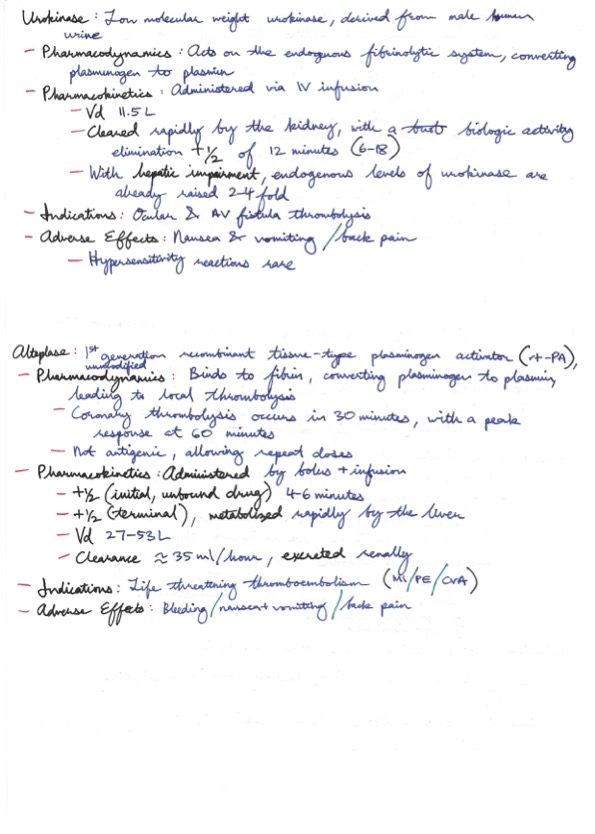 Urokinase : Low molecular weight urokinase, derived from male human
urine
- Pharmacodynamics : Acts on the endogenous fibrinolytic system, converting
plasminogen to plasmin
- Pharmacokinetics : Administered via IV infusion
- Vd 11.5 L
- Cleared rapidly by the kidney, with a biologic activity
elimination t½ of 12 minutes (6-18)
- With hepatic impairment, endogenous levels of urokinase are
already raised 2-4 fold
- Indications : Ocular & AV fistula thrombolysis
- Adverse Effects : Nausea & vomiting / back pain
- Hypersensitivity reactions rare
Alteplase : 1st generation recombinant tissue-type plasminogen activator (rt-PA),
unmodified
- Pharmacodynamics : Binds to fibrin, converting plasminogen to plasmin,
leading to local thrombolysis
- Coronary thrombolysis occurs in 30 minutes, with a peak
response at 60 minutes
- Not antigenic, allowing repeat doses
- Pharmacokinetics : Administered by bolus + infusion
- t½ (initial, unbound drug) 4-6 minutes
- t½ (terminal), metabolized rapidly by the liver
- Vd 27-53 L
- Clearance ≈ 35 ml/hour, excreted renally
- Indications : Life threatening thromboembolism (MI/PE/CVA)
- Adverse Effects : Bleeding / nausea + vomiting / back pain